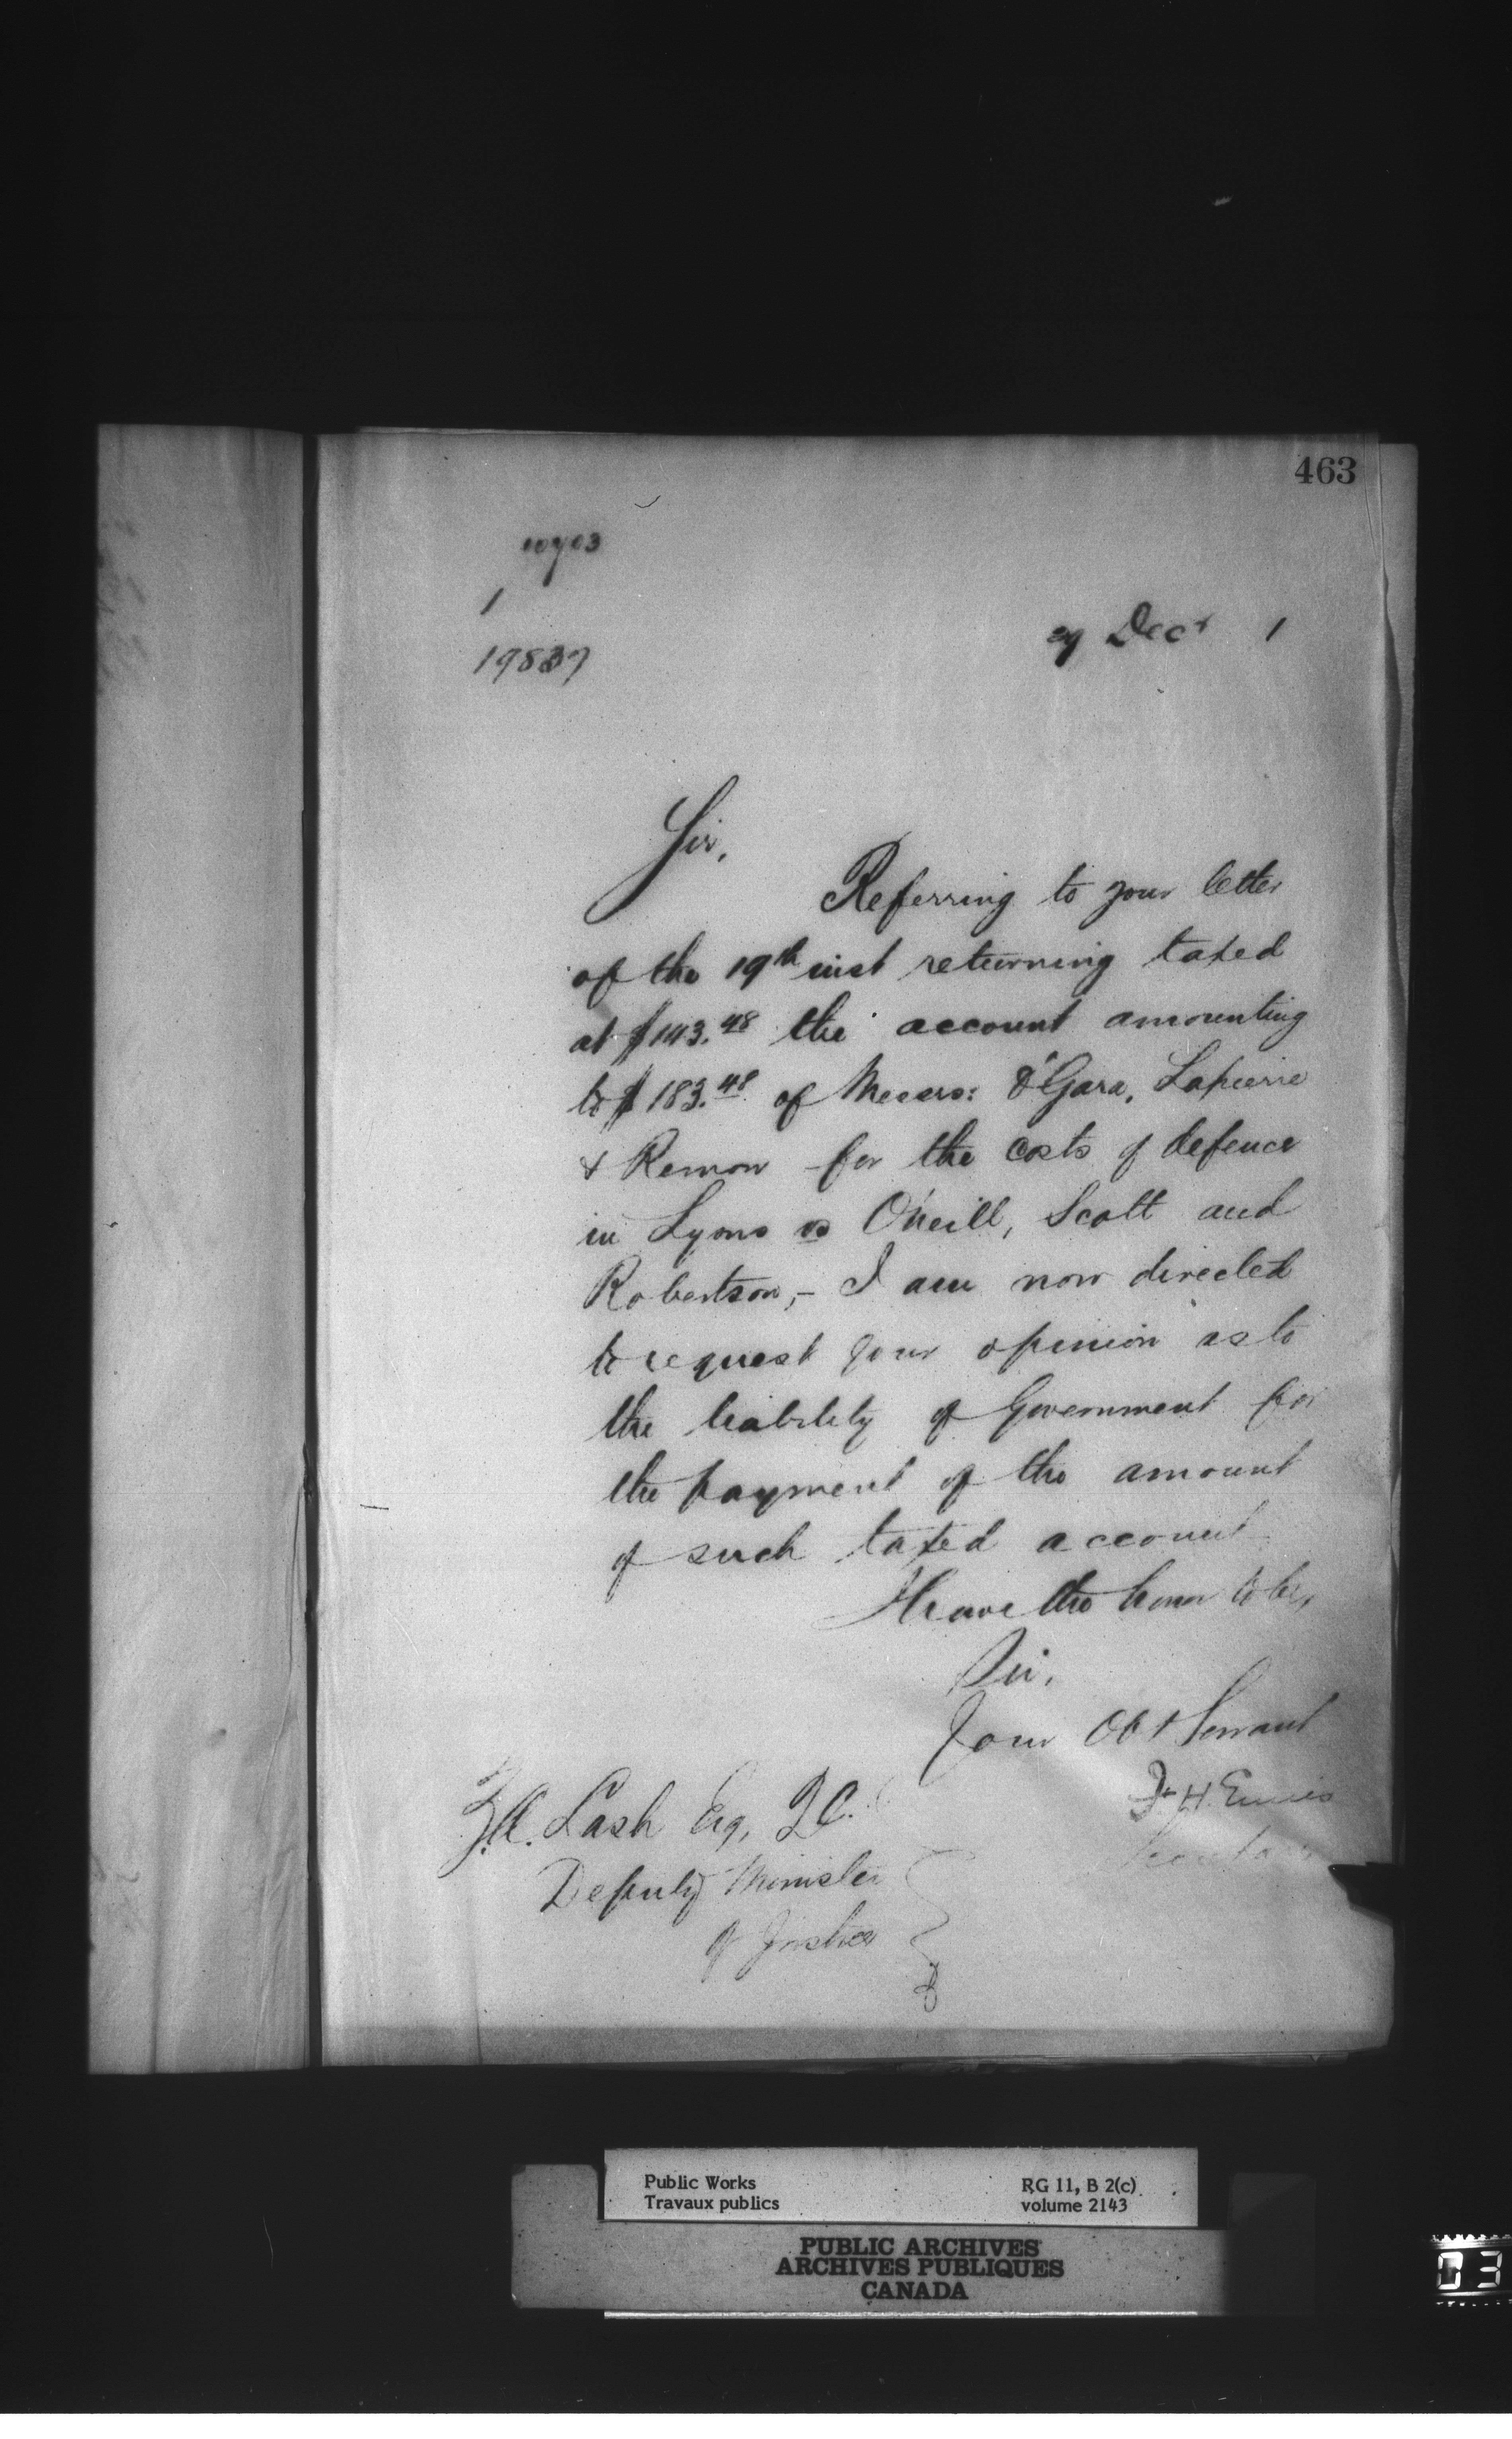 463
1
19837
29 Decr 1
Sir,
Referring to your letter
of the 19th inst returning taxed
at $143.48 the account amounting
to $183.48 of Messrs: O'Gara, Lapierre
& Remon for the costs of defence
in Lyons vs O'Neill, Scott and
Robertson,- I am now directed
to request your opinion as to
the liability of Government for
the payment of the amount
of such taxed account
I have the honor to be,
Sir,
Your Obt Servant
F. H. Ennis
Secretary
Z.A. Lash Esq, Q.C.
Deputy Minister
of Justice
Public Works
Travaux publics
RG 11, B 2(c)
volume 2143
PUBLIC ARCHIVES
ARCHIVES PUBLIQUES
CANADA
03